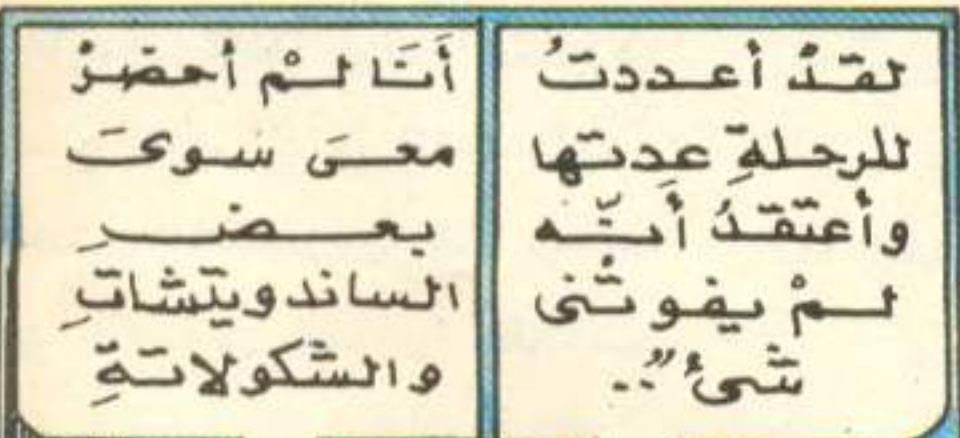 لقدْ أعددتُ
للرحلةِ عدتها
وأعتقدُ أَنّه
لمْ يفوتْنى
شىءٌ ..
أَنَا لمْ أحضرْ
معىَ سوىَ
بعضِ
الساندويتشاتِ
والشكولاتةِ